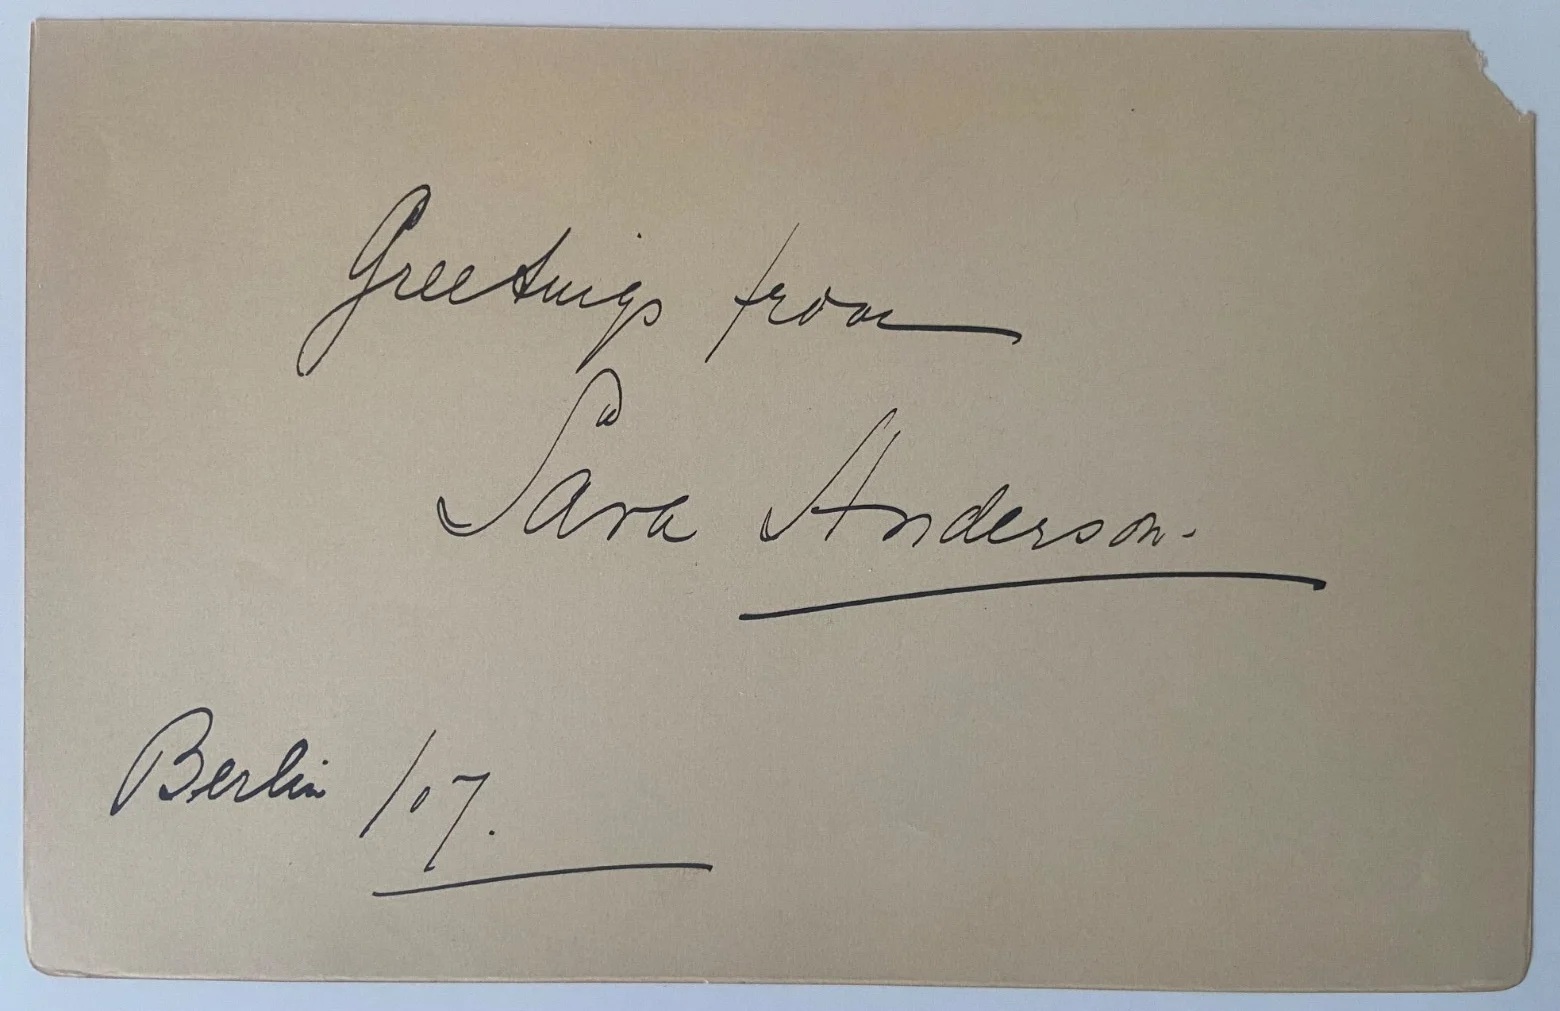 Greetings from
Sara Anderson.
Berlin /07.